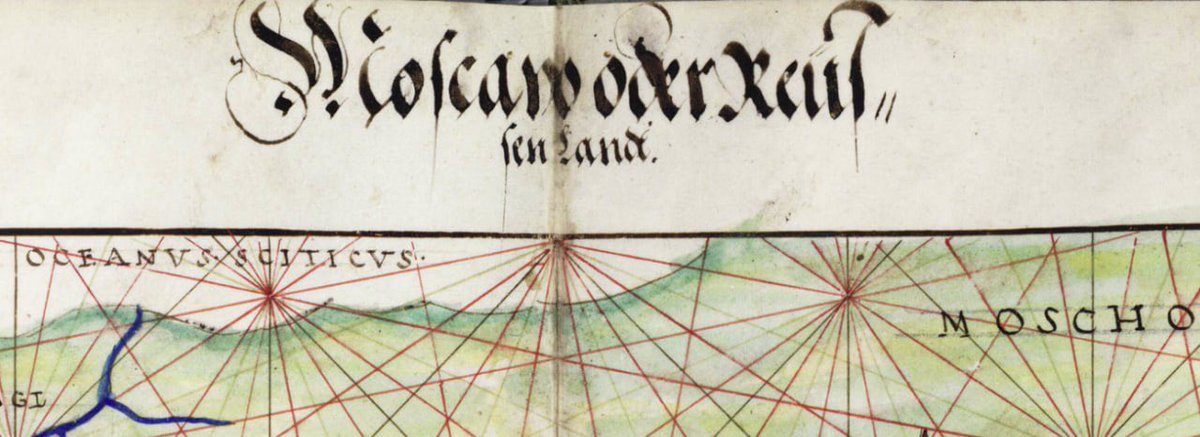 Moscaw oder Reüs„
sen Land.
OCEANVS · SCITICVS ·
MOSCHO
AGI